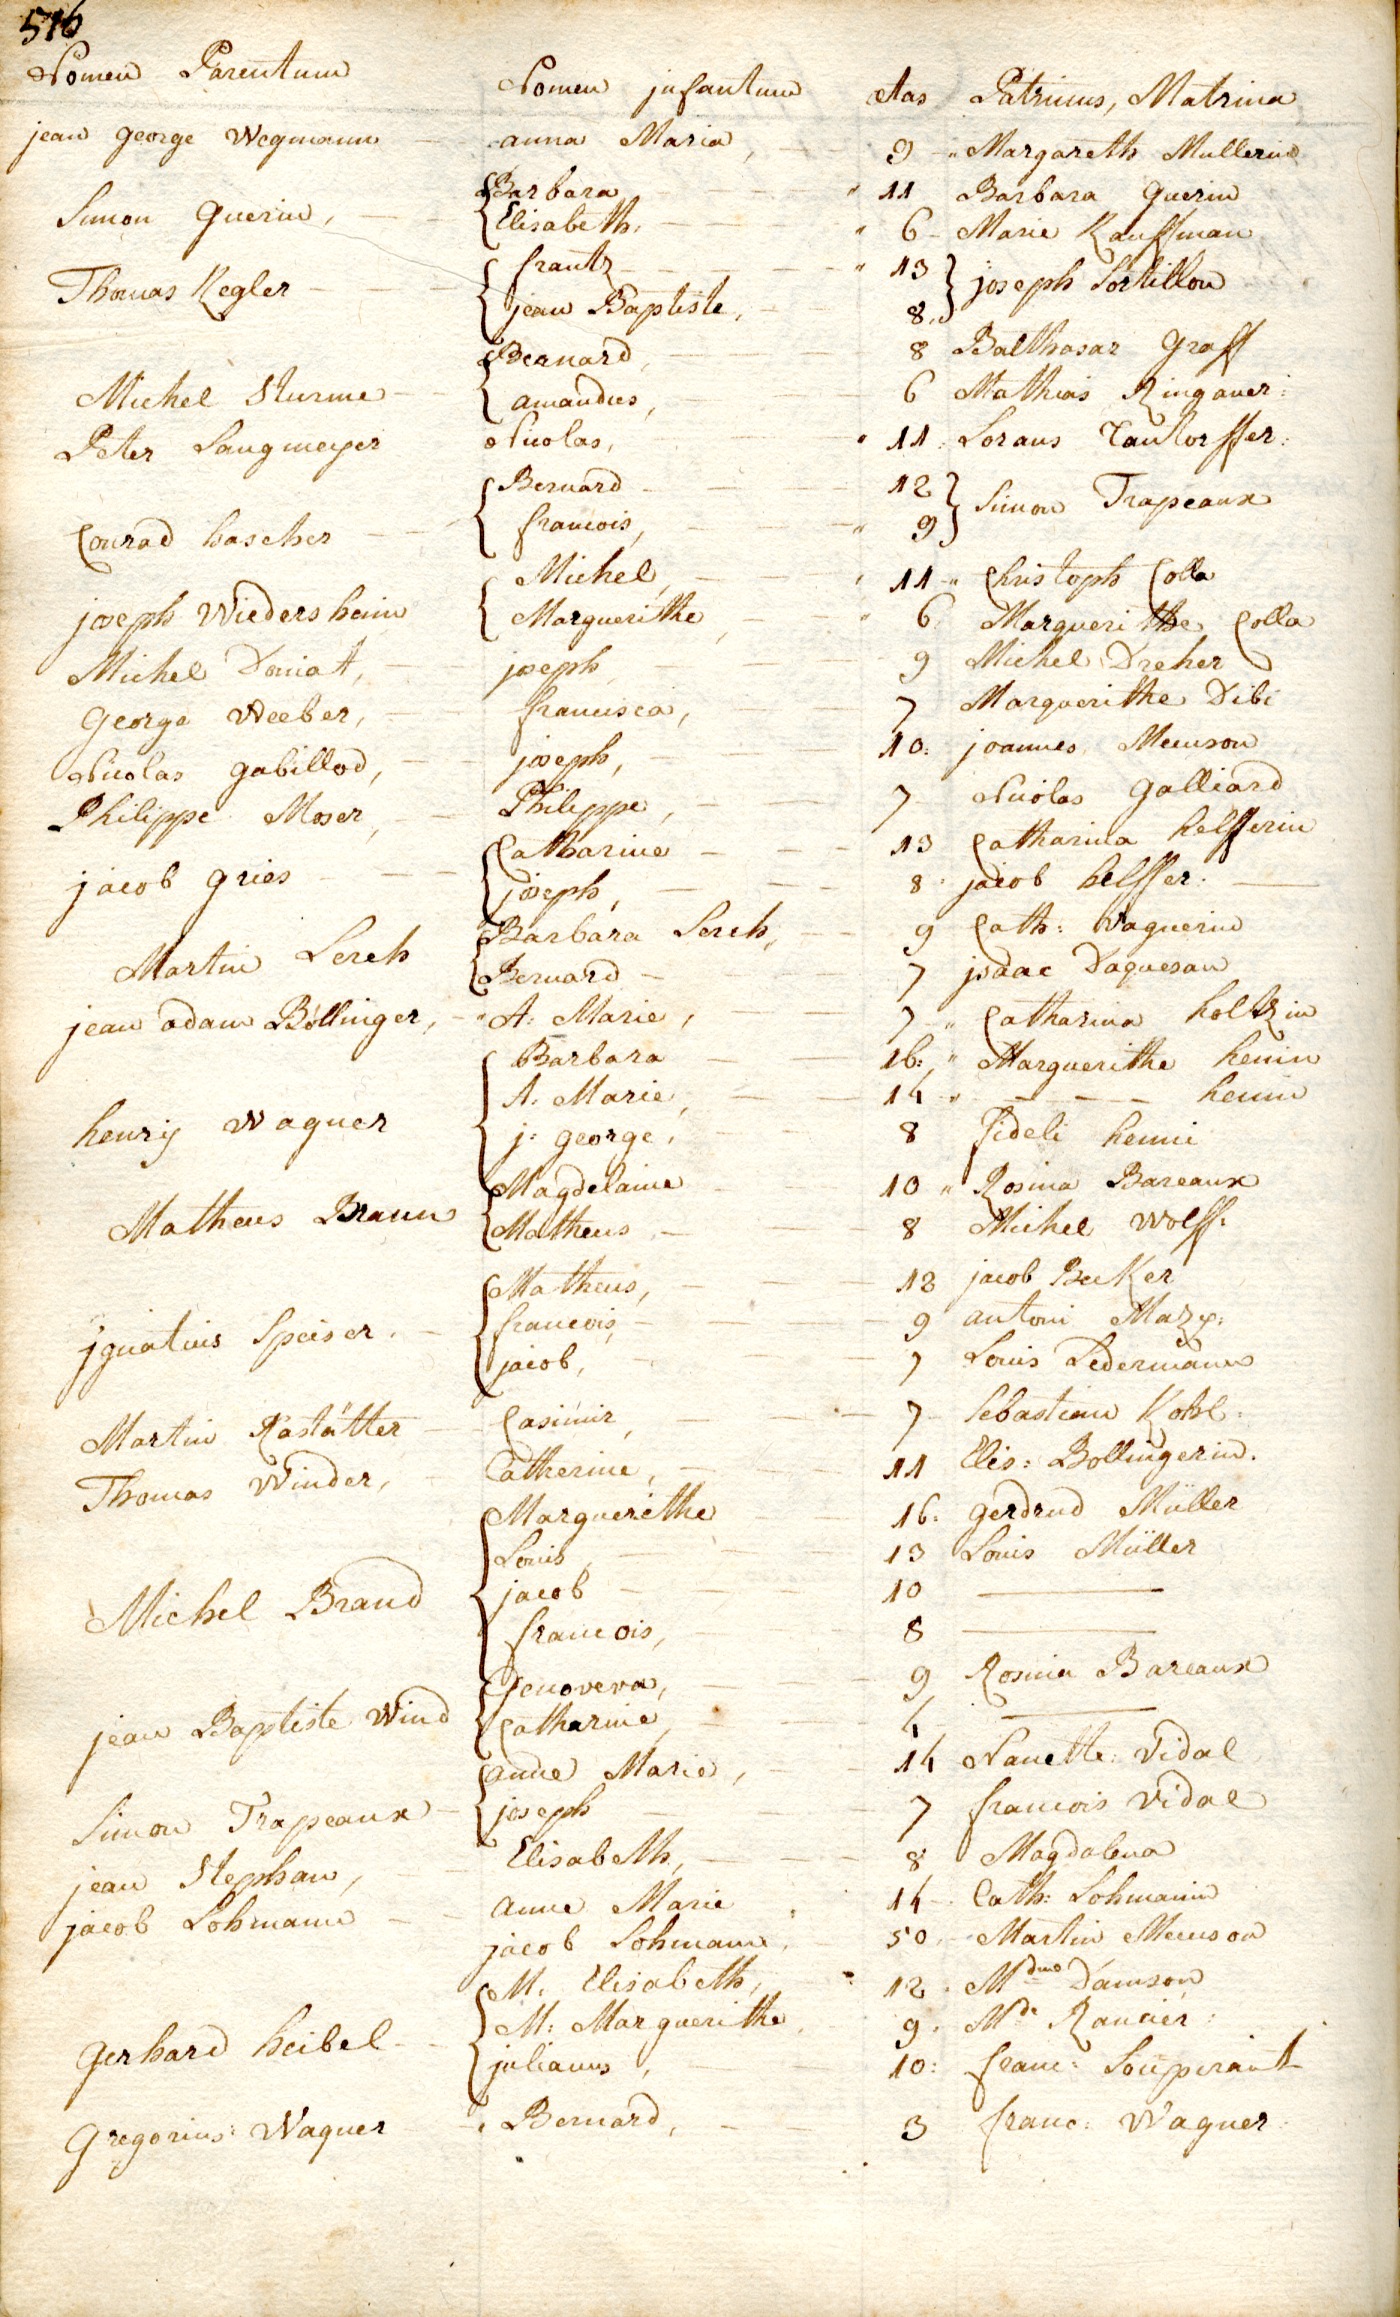 516
Nomen Parentum Nomen jnfantum etas Patrinus, Matrina
jean george Wegmann anna Maria, 9 Margareth Mullerin
Simon Guerin, Barbara 11 Barbara Guerin
Elisabeth, 6 Marie Kauffman
Thomas Kegler frantz 13 joseph Sortillon
jean Baptiste, 8
Bernard, 8 Balthasar Graff
Michel Sturme amandus, 6 Mathias Ringauer
Peter Langmeyer Nicolas, 11 Lorans
Bernard 12 Simon Trapeaux
Conrad hascher francois, 9
Michel, 11 Christoph Colla
joseph Wiedersheim Marguerithe 6 Marguerithe Colla
Michel Doniat, joseph 9 Michel Dreher
George Weeber, francisca, 7 Marguerithe Dibi
Nicolas gabillod, joseph, 10: joannes Meuson
Philippe Moser, Philippe, 7 Nicolas Galliard
Catharine 13 Catharina helfferin
jacob gries joseph, 8 jacob helffer.
Barbara Lerch, 9 Cath: Vagnerin
Martin Lerch Bernard 7 jsaac Daguesan
jean adam Böllinger, A: Marie, 7 Catharina holtzin
Barbara 16: Marguerithe henin
henrÿ Wagner A. Marie, 14 henin
j: george, 8 fideli henni
Magdelaine 10 Rosina Bareaux
Matheus Braun Matheus 8 Michel Wolff:
Matheus, 12 jacob Becker
jgnatius Speiser. francois, 9 antoni Mazy:
jacob, 7 Louis Ledermann
Martin Rastätter Casimir, 7 Sebastian Kohl
Thomas Winder, Catherine, 11 Elis: Bollingerin.
Marguerithe 16: gerdrud Müller
Louis, 13 Louis Müller
Michel Brand jacob 10
francois, 8
Genoveva, 9 Rosina Bareaux
jean Baptiste Wind Catharine, 4
anne Marie, 14 Nanette Vidal
Simon Trapeaux joseph 7 francois Vidal
jean Stephan, Elisabeth, 8 Magdalena
jacob Lohmann anne Marie 14 Cath: Lohmanin
jacob Lohmann, 50 Martin Meuson
M. Elisabeth, 12 Mdme Damson
gerhard heibel M: Marguerithe 9 Mde Rancier
julianus, 10: franc: Souperant
Gregorius: Wagner Bernard, 3 franc: Wagner